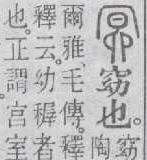 窈也。窈
陶
爾雅、毛傳。釋
釋云幼穉者
也。正謂宫室